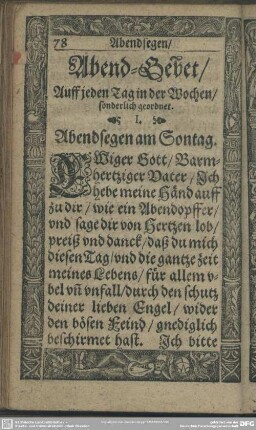 78 Abendsegen/
Abend-Gebet/
Auff jeden Tag in der Wochen/
sonderlich geordnet.
I.
Abendsegen am Sontag.
EWiger Gott/ Barm-
hertziger Vater/ Ich
hebe meine Händ auff
zu dir/ wie ein Abendopffer/
und sage dir von Hertzen lob/
preiß und danck/ daß du mich
diesen Tag/ und die gantze zeit
meines Lebens/ für allem v-
bel vñ vnfall/ durch den schutz
deiner lieben Engel/ wider
den bösen Feind/ gnediglich
beschirmet hast. Ich bitte
DFG